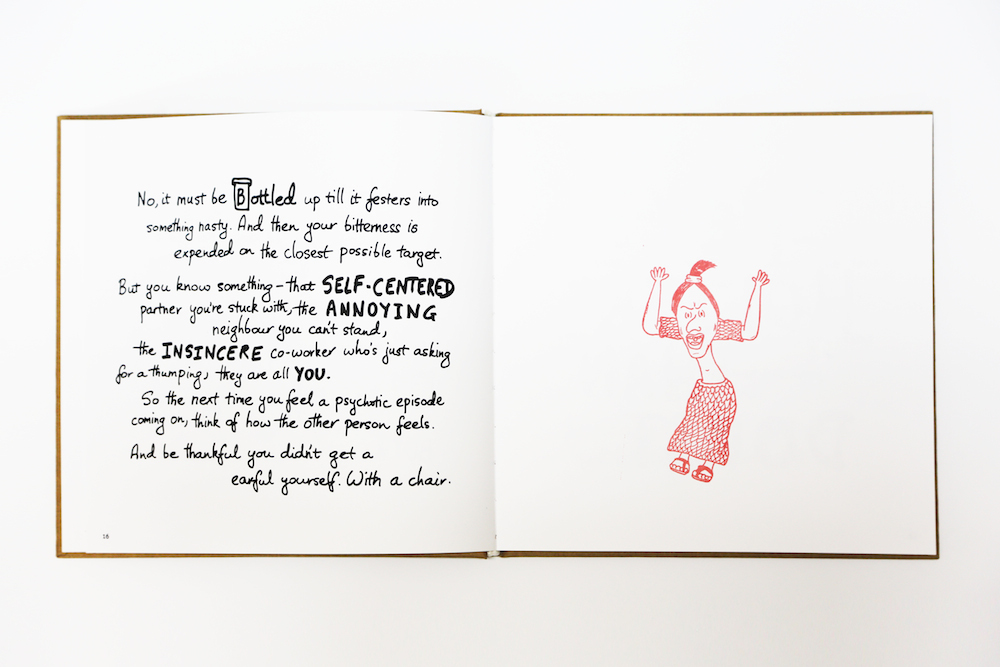 No, it must be Bottled up till it festers into
something nasty. And then your bitterness is
expended on the closest possible target.
But you know something – that SELF-CENTERED
partner you're stuck with, the ANNOYING
neighbour you can't stand,
the INSINCERE co-worker who's just asking
for a thumping, they are all YOU.
So the next time you feel a psychotic episode
coming on, think of how the other person feels.
And be thankful you didn't get a
earful yourself. With a chair.
16